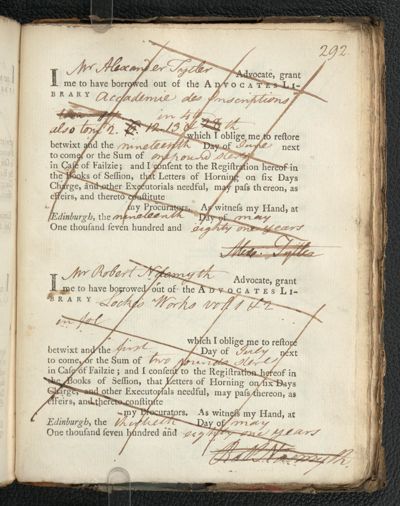 292
I Mr Alexander Tytler Advocate, grant
me to have borrowed out of the ADVOCATES LI-
BRARY Accademie des Inscriptions
in 4to
also tom 2. 12. 13 & th
which I oblige me to restore
betwixt and the nineteenth Day of June next
to come, or the Sum of one pound sterg
in Case of Failzie; and I consent to the Registration hereof in
the Books of Session, that Letters of Horning on six Days
Charge, and other Executorials needful, may pass thereon, as
effeirs, and thereto constitute
my Procurators. As witness my Hand, at
Edinburgh, the nineteenth Day of may
One thousand seven hundred and eighty one years
Alexr. Tytler
I Mr Robert Nasmyth Advocate, grant
me to have borrowed out of the ADVOCATES LI-
BRARY Lockes Works vol 1 & 2
in fol
which I oblige me to restore
betwixt and the first Day of July next
to come, or the Sum of two pounds sterg
in Case of Failzie; and I consent to the Registration hereof in
the Books of Session, that Letters of Horning on six Days
Charge, and other Executorials needful, may pass thereon, as
effeirs, and thereto constitute
my Procurators. As witness my Hand, at
Edinburgh, the thirtieth Day of may
One thousand seven hundred and eighty one years
Rob Nasmyth